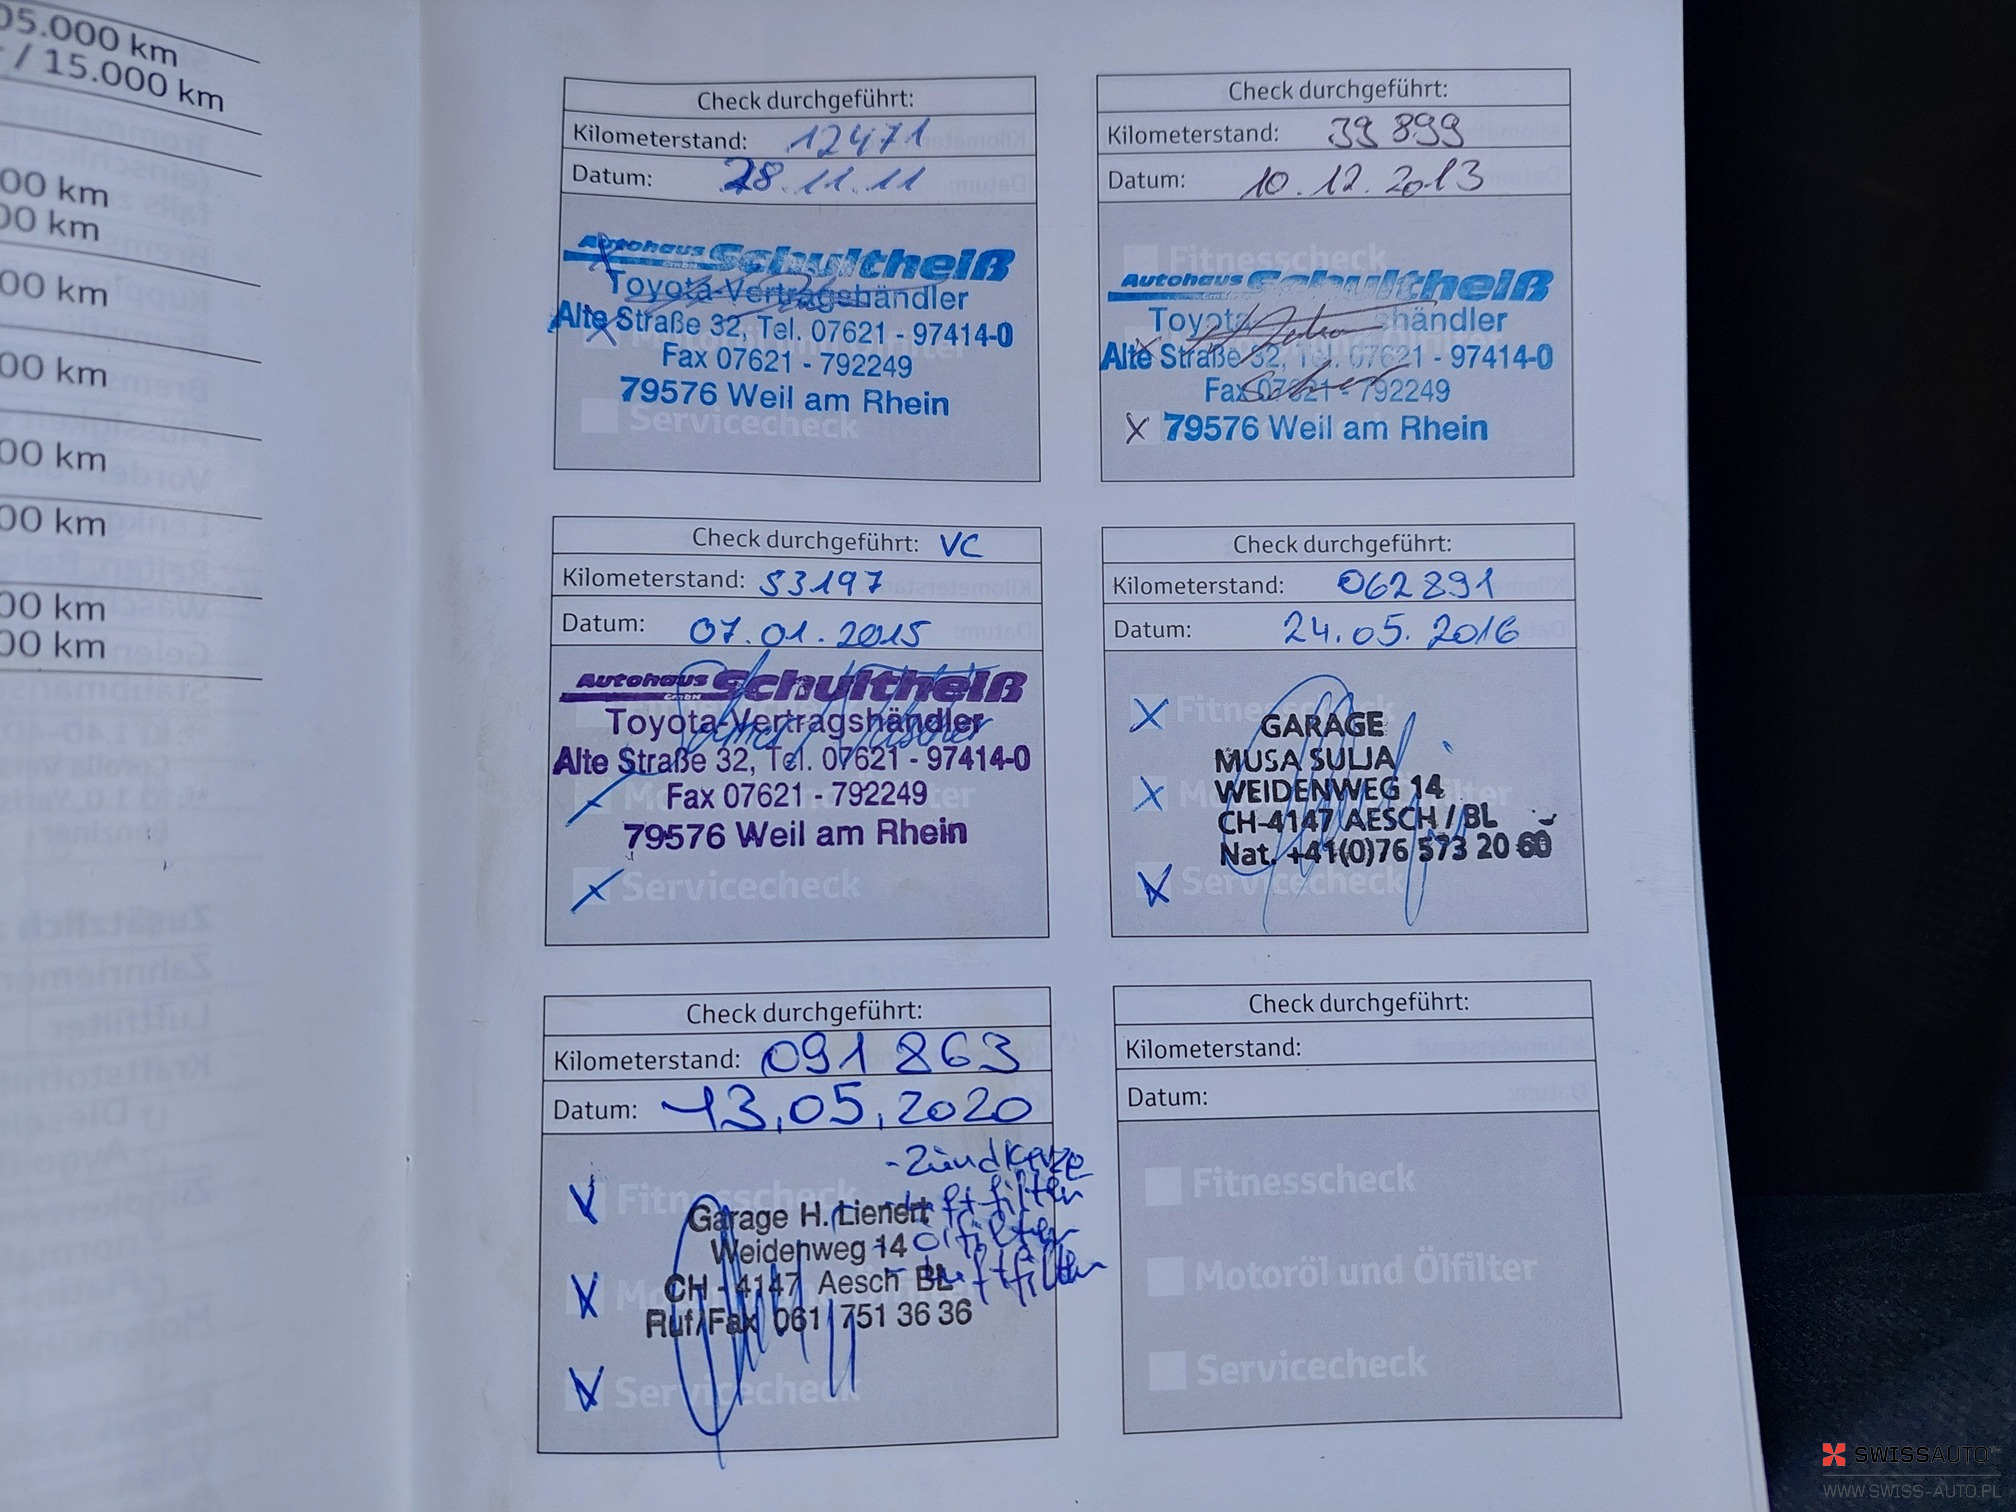 05.000 km
/ 15.000 km
00 km
00 km
00 km
00 km
00 km
00 km
00 km
00 km
Check durchgeführt:
Kilometerstand: 12471
Datum: 28.11.11
Autohaus Schultheiß
GmbH
Toyota-Vertragshändler
Alte Straße 32, Tel. 07621 - 97414-0
Fax 07621 - 792249
79576 Weil am Rhein
Motoröl und Ölfilter
Servicecheck
Check durchgeführt:
Kilometerstand: 39899
Datum: 10.12.2013
Fitnesscheck
Autohaus Schultheiß
GmbH
Toyota-Vertragshändler
Alte Straße 32, Tel. 07621 - 97414-0
Fax 07621 - 792249
79576 Weil am Rhein
Check durchgeführt: VC
Kilometerstand: 53197
Datum: 07.01.2015
Autohaus Schultheiß
GmbH
Toyota-Vertragshändler
Alte Straße 32, Tel. 07621 - 97414-0
Fax 07621 - 792249
79576 Weil am Rhein
Servicecheck
Check durchgeführt:
Kilometerstand: 062891
Datum: 24.05.2016
Fitnesscheck
GARAGE
MUSA SULJA
WEIDENWEG 14
CH-4147 AESCH / BL
Nat. +41(0)76 573 20 60
Servicecheck
Check durchgeführt:
Kilometerstand: 091863
Datum: 13.05.2020
- Zündkerze
Fitnesscheck
Luftfilter
Garage H. Lienert
Weidenweg 14
- Ölfilter
- Luftfilter
CH - 4147 Aesch BL
Ruf/Fax 061 751 36 36
Servicecheck
Check durchgeführt:
Kilometerstand:
Datum:
Fitnesscheck
Motoröl und Ölfilter
Servicecheck
SWISSAUTO
WWW.SWISS-AUTO.PL